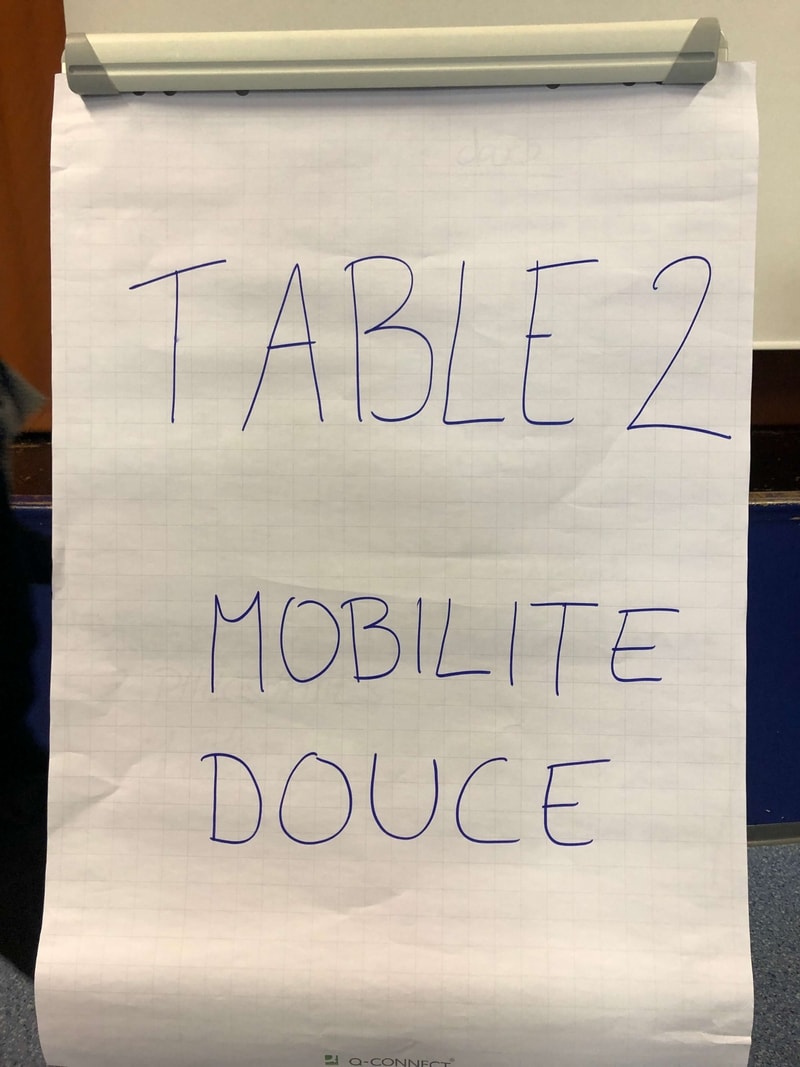 TABLE 2
MOBILITE
DOUCE
Q-CONNECT